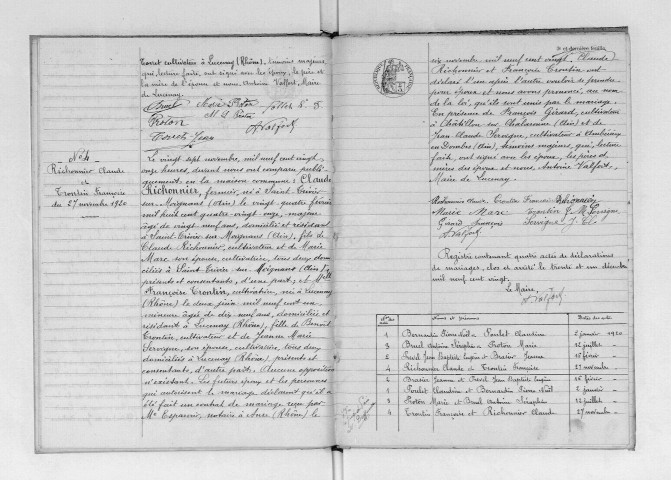 Torret cultivateur à Lucenay (Rhône), témoins majeurs,
qui, lecture faite, ont signé avec les époux, le père et
la mère de l'épouse et nous, Antoine Valfort, Maire
de Lucenay.
Buel
Valfort
N° 4
Richonnier Claude
et
Trontin Françoise
du 27 novembre 1920
Le vingt sept novembre mil neuf cent vingt
onze heures, devant nous ont comparu publi-
quement en la maison commune : Claude
Richonnier, fermier, né à Saint Trivier
sur Moignans (Ain) le vingt quatre février
mil huit cent quatre vingt onze, majeur
âgé de vingt neuf ans, domicilié et résidant
à Saint Trivier sur Moignans (Ain), fils de
Claude Richonnier, cultivateur et de Marie
Marc son épouse, cultivatrice, tous deux domi-
ciliés à Saint Trivier sur Moignans (Ain)
présents et consentants, d'une part ; et Melle
Françoise Trontin, cultivatrice, née à Lucenay
(Rhône) le deux juin mil neuf cent un
mineure âgée de dix neuf ans, domiciliée et
résidant à Lucenay (Rhône), fille de Benoit
Trontin, cultivateur et de Jeanne Marie
Servigne, son épouse, cultivatrice, tous deux
domiciliés à Lucenay (Rhône), présents et
consentants, d'autre part. Aucune opposition
n'existant. Les futurs époux et les personnes
qui autorisent le mariage déclarent qu'il a
été fait un contrat de mariage reçu par
Me Esparvié, notaire à Anse (Rhône) le
et dernier feuille.
six novembre mil neuf cent vingt. Claude
Richonnier et Françoise Trontin ont
déclaré l'un après l'autre vouloir se prendre
pour époux et nous avons prononcé, au nom
de la loi, qu'ils sont unis par le mariage.
En présence de François Girard, cultivateur
à Châtillon sur Chalaronne (Ain) et de
Jean Claude Servigne, cultivateur à Ambérieux
en Dombes (Ain), témoins majeurs, qui, lecture
faite, ont signé avec les époux, les pères et
mères des époux, et nous Antoine Valfort,
Maire de Lucenay.
Richonnier Claude Trontin Françoise Richonnier
Marie Marc Trontin J. M. Servigne
Girard François Servigne J. Cl.
Valfort
Registre contenant quatre actes et déclarations
de mariages, clos et arrêté le trente et un décembre
mil neuf cent vingt.
Le Maire,
Valfort
Nos des actes Noms et prénoms Dates des actes
1 Bernardin Pierre Noël et Poulet Claudine 2 janvier 1920
3 Buel Antoine Séraphin et Froton Marie 12 juillet
2 Jean Baptiste Eugène et Brasier Jeanne 15 février
4 Richonnier Claude et Trontin Françoise 27 novembre
2 Brasier Jeanne et Jean Baptiste Eugène 15 février
1 Poulet Claudine et Bernardin Pierre Noël 2 janvier
3 Froton Marie et Buel Antoine Séraphin 12 juillet
4 Trontin Françoise et Richonnier Claude 27 novembre